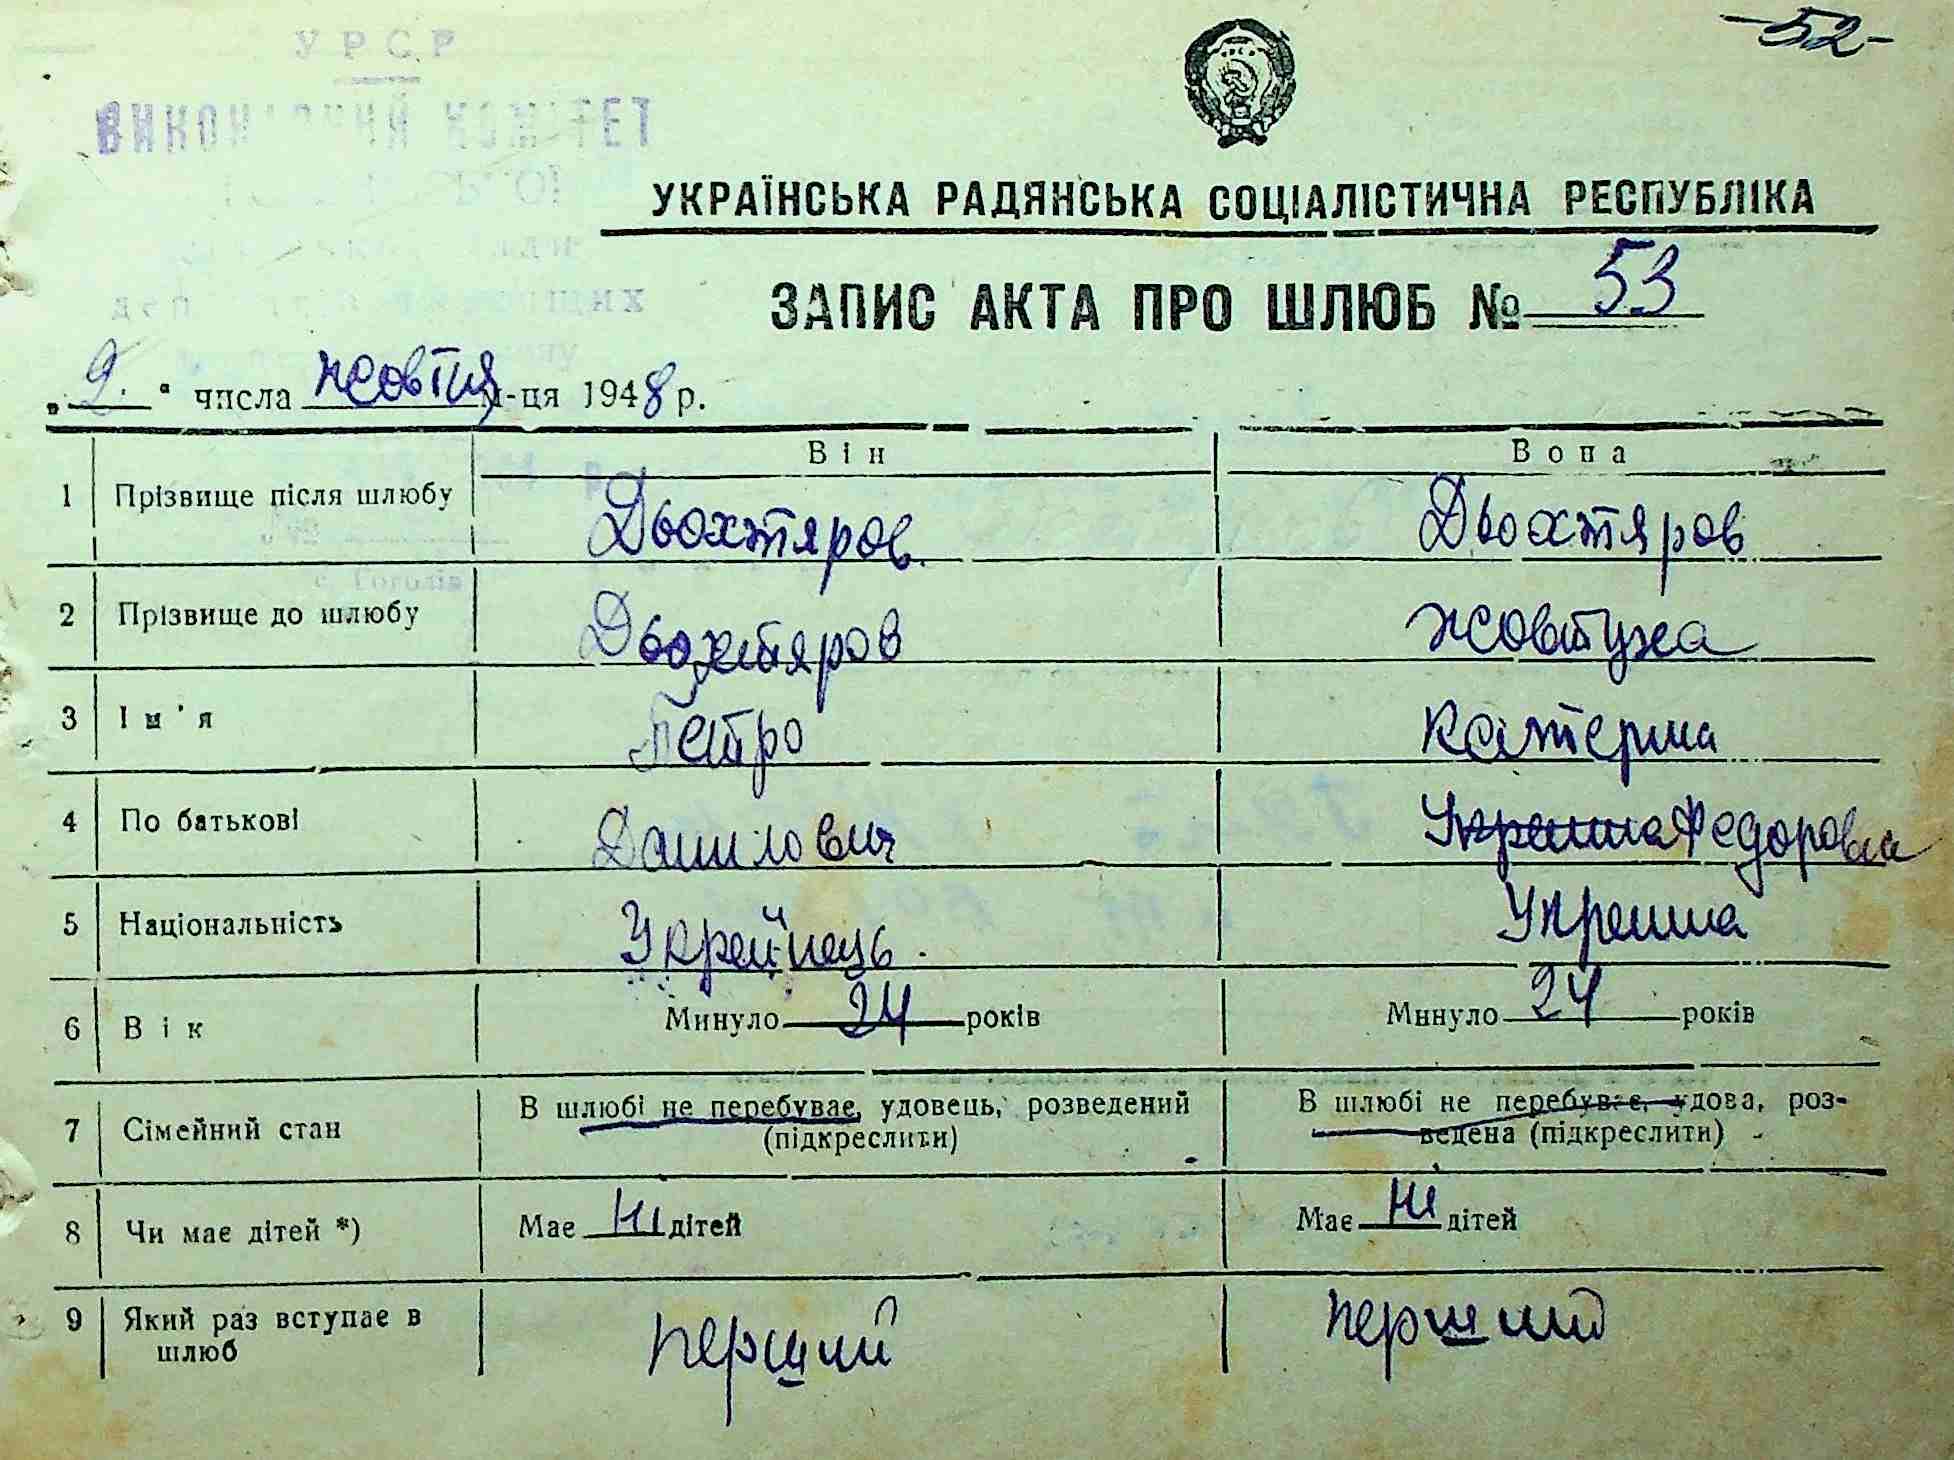 -52-
УРСР
ВИКОНАВЧИЙ КОМІТЕТ
УКРАЇНСЬКА РАДЯНСЬКА СОЦІАЛІСТИЧНА РЕСПУБЛІКА
ЗАПИС АКТА ПРО ШЛЮБ № 53
„ 2. “ числа жовтня м-ця 1948 р.
Він Вона
1 Прізвище після шлюбу Дьохтяров. Дьохтяров
2 Прізвище до шлюбу Дьохтяров Жовтуха
3 Ім'я Петро Катерина
4 По батькові Данилович Украинка Федоровна
5 Національність Украйнець. Украинка
6 Вік Минуло 24 років Минуло 24 років
7 Сімейний стан В шлюбі не перебуває, удовець, розведений (підкреслити) В шлюбі не перебуває, удова, розведена (підкреслити)
8 Чи має дітей *) Має Ні дітей Має Ні дітей
9 Який раз вступає в шлюб перший перший
с. Гоголів